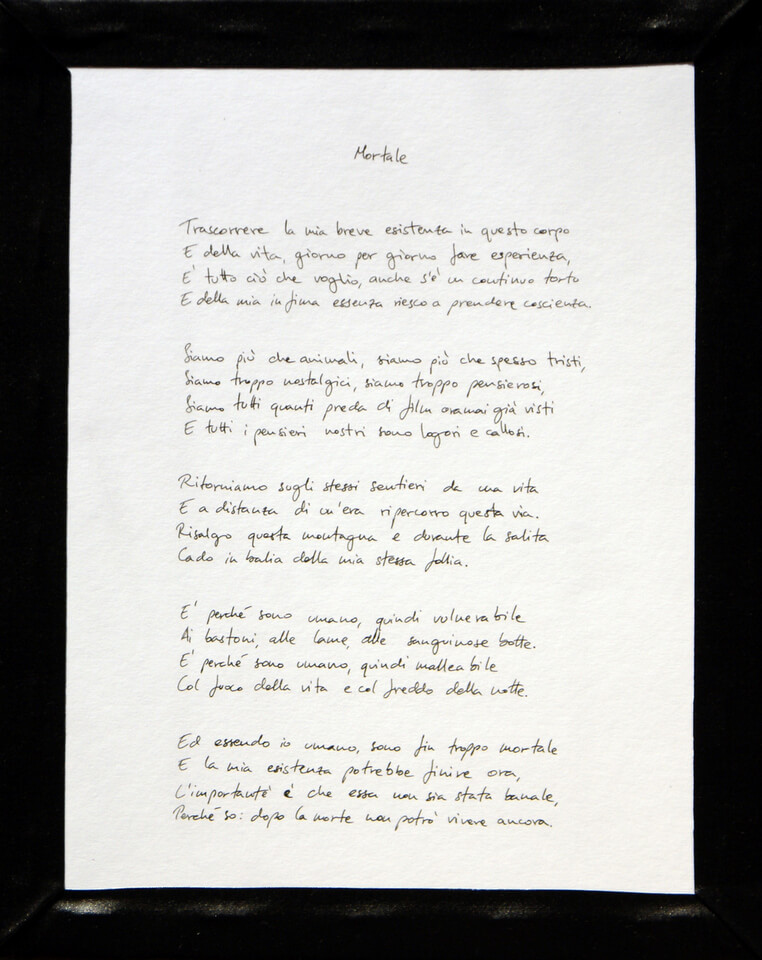 Mortale
Trascorrere la mia breve esistenza in questo corpo
E della vita, giorno per giorno fare esperienza,
E' tutto ciò che voglio, anche s'e' un continuo torto
E della mia infima essenza riesco a prendere coscienza.
Siamo più che animali, siamo più che spesso tristi,
Siamo troppo nostalgici, siamo troppo pensierosi,
Siamo tutti quanti preda di film oramai già visti
E tutti i pensieri nostri sono logori e callosi.
Ritorniamo sugli stessi sentieri da una vita
E a distanza di un'era ripercorro questa via.
Risalgo questa montagna e durante la salita
Cado in balia della mia stessa follia.
E' perché sono umano, quindi vulnerabile
Ai bastoni, alle lame, alle sanguinose botte.
E' perché sono umano, quindi malleabile
Col fuoco della vita e col freddo della notte.
Ed essendo io umano, sono fin troppo mortale
E la mia esistenza potrebbe finire ora,
L'importante è che essa non sia stata banale,
Perché so: dopo la morte non potrò vivere ancora.